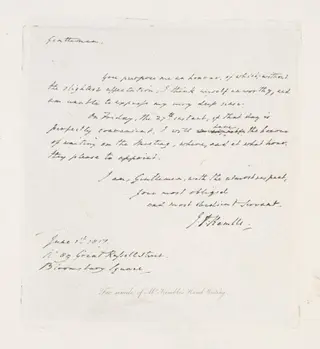 Gentlemen,
You propose me an honour, of which without
the slightest affectation, I think myself unworthy, and
am unable to express my very deep sense.
On Friday, the 27th instant, if that day is
perfectly convenient, I will have the honour
of waiting on the Meeting, where, and at what hour,
they please to appoint.
I am, Gentlemen, with the utmost respect,
your most obliged
and most obedient servant.
J. P. Kemble
June 1st 1817.
No 89 Great Russell Street
Bloomsbury Square
Fac simile of Mr Kembles Hand Writing